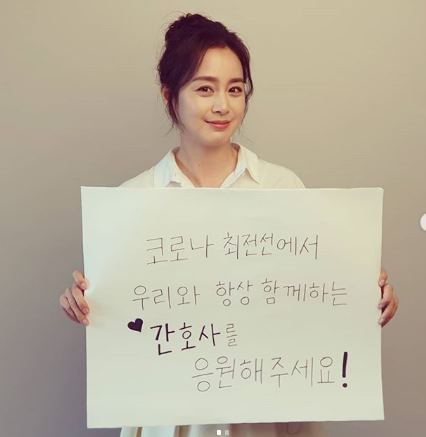 코로나 최전선에서
우리와 항상 함께하는
♥간호사를
응원해주세요!